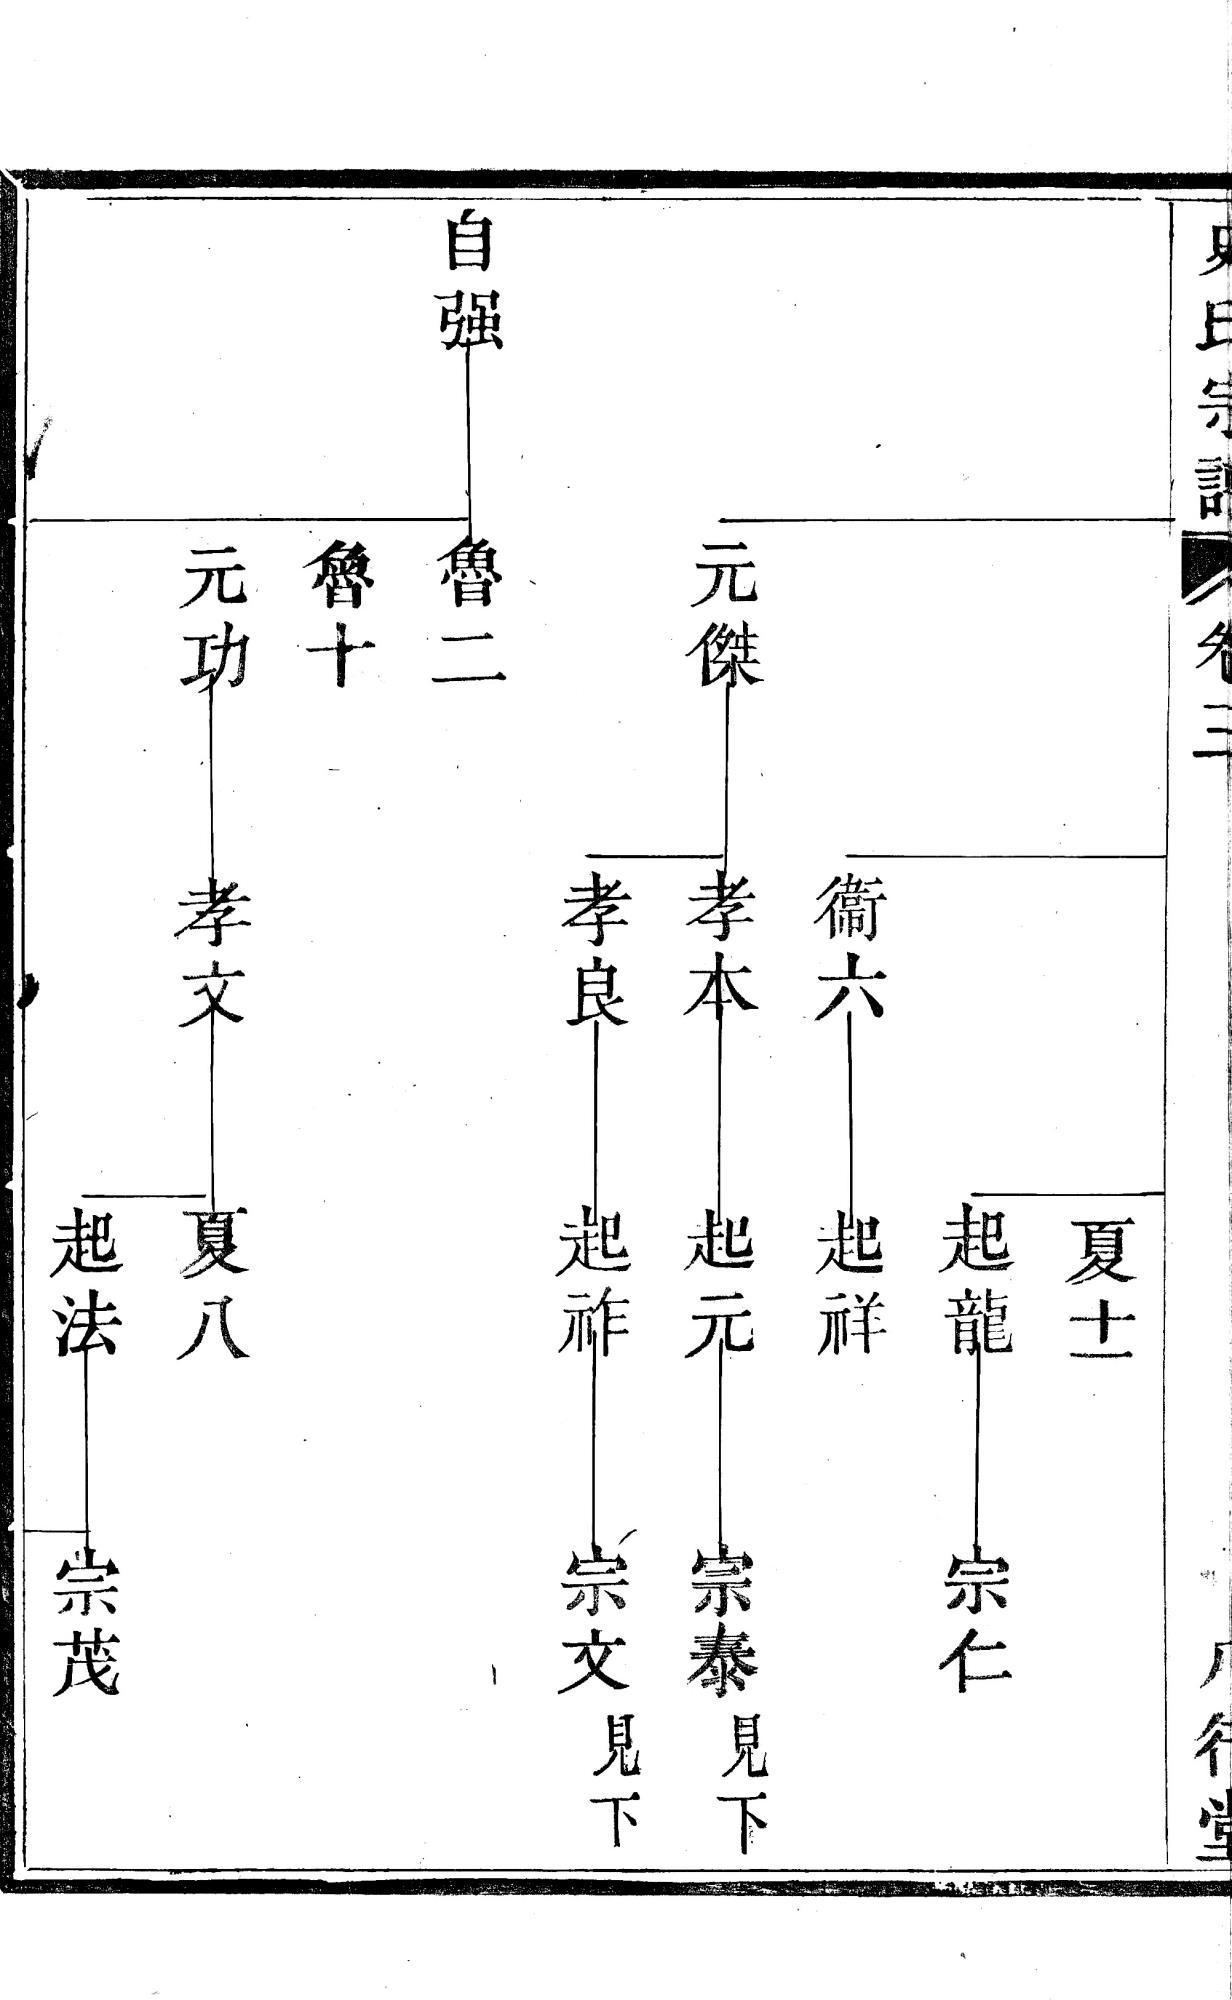 史氏宗譜
卷三
八行堂
夏十一
起龍
宗仁
衞六
起祥
元傑
孝本
起元
宗泰 見下
孝良
起祚
宗文 見下
自强
魯二
魯十
元功
孝文
夏八
起法
宗茂